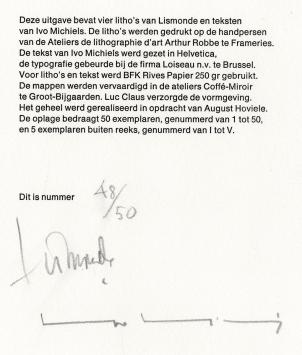 Deze uitgave bevat vier litho's van Lismonde en teksten
van Ivo Michiels. De litho's werden gedrukt op de handpersen
van de Ateliers de lithographie d'art Arthur Robbe te Frameries.
De tekst van Ivo Michiels werd gezet in Helvetica,
de typografie gebeurde bij de firma Loiseau n.v. te Brussel.
Voor litho's en tekst werd BFK Rives Papier 250 gr gebruikt.
De mappen werden vervaardigd in de ateliers Coffé-Miroir
te Groot-Bijgaarden. Luc Claus verzorgde de vormgeving.
Het geheel werd gerealiseerd in opdracht van August Hoviele.
De oplage bedraagt 50 exemplaren, genummerd van 1 tot 50,
en 5 exemplaren buiten reeks, genummerd van I tot V.
Dit is nummer 48/50
Lismonde